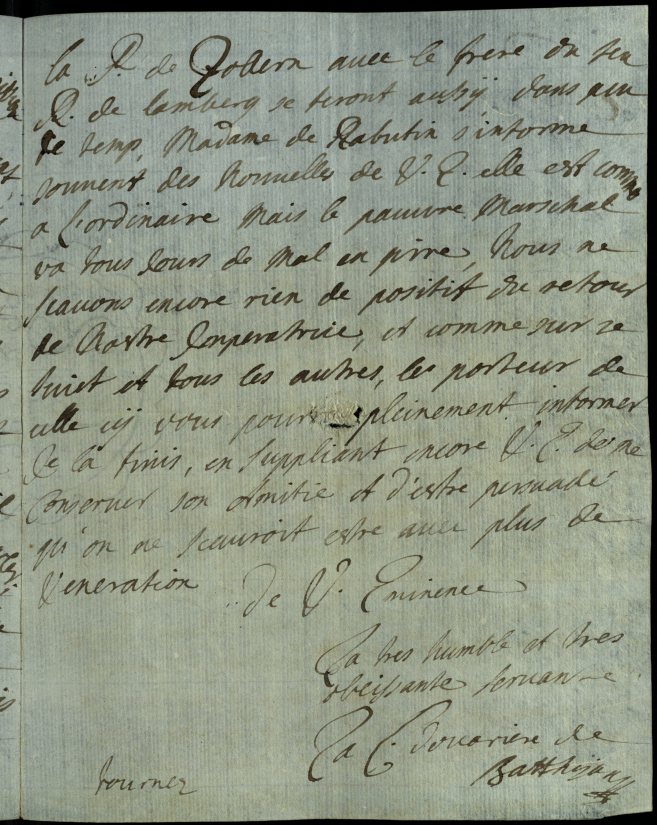 la P. de Zollern avec le frere du feu
P. de lamberg se feront aussÿ dans peu
de temp, Madame de Rabutin s'informe
souvent des Nouvelles de V. E. elle est comme
a l'ordinaire Mais le pauvre Marschal
va tous Jours de Mal en pirre, Nous ne
scavons encore rien de positif du retour
de Nostre Imperatrice, et comme sur ce
suiet et tous les autres, les porteur de
celle cÿ vous pourra pleinement informer
Je la finis, en suppliant encore V. E. de me
conserver son Amitie et d'estre persuadé
qu'on ne scauroit estre avec plus de
Veneration
de V. Eminence
La tres humble et tres
obeissante servante
La C. douariere de
Batthÿany
tournez